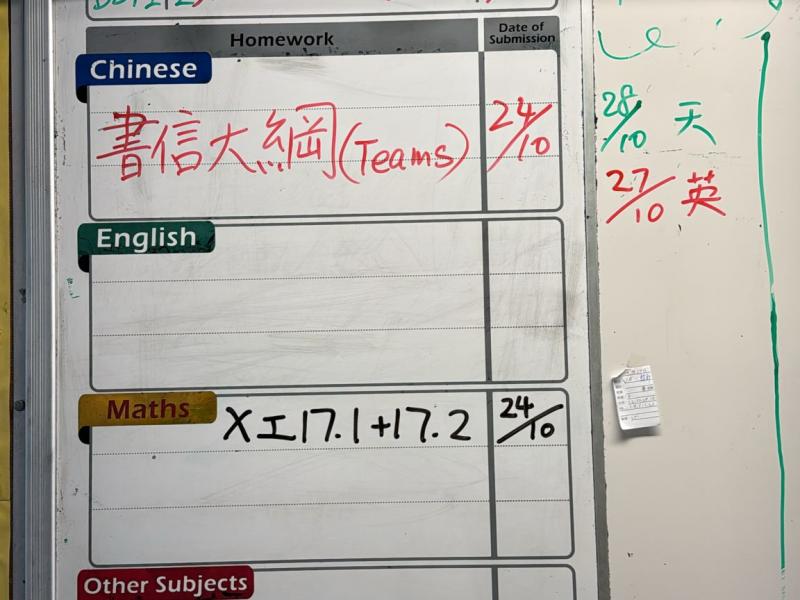 Homework
Date of Submission
Chinese
書信大綱(Teams) 24/10
28/10 天
27/10 英
English
Maths
X工17.1+17.2 24/10
Other Subjects